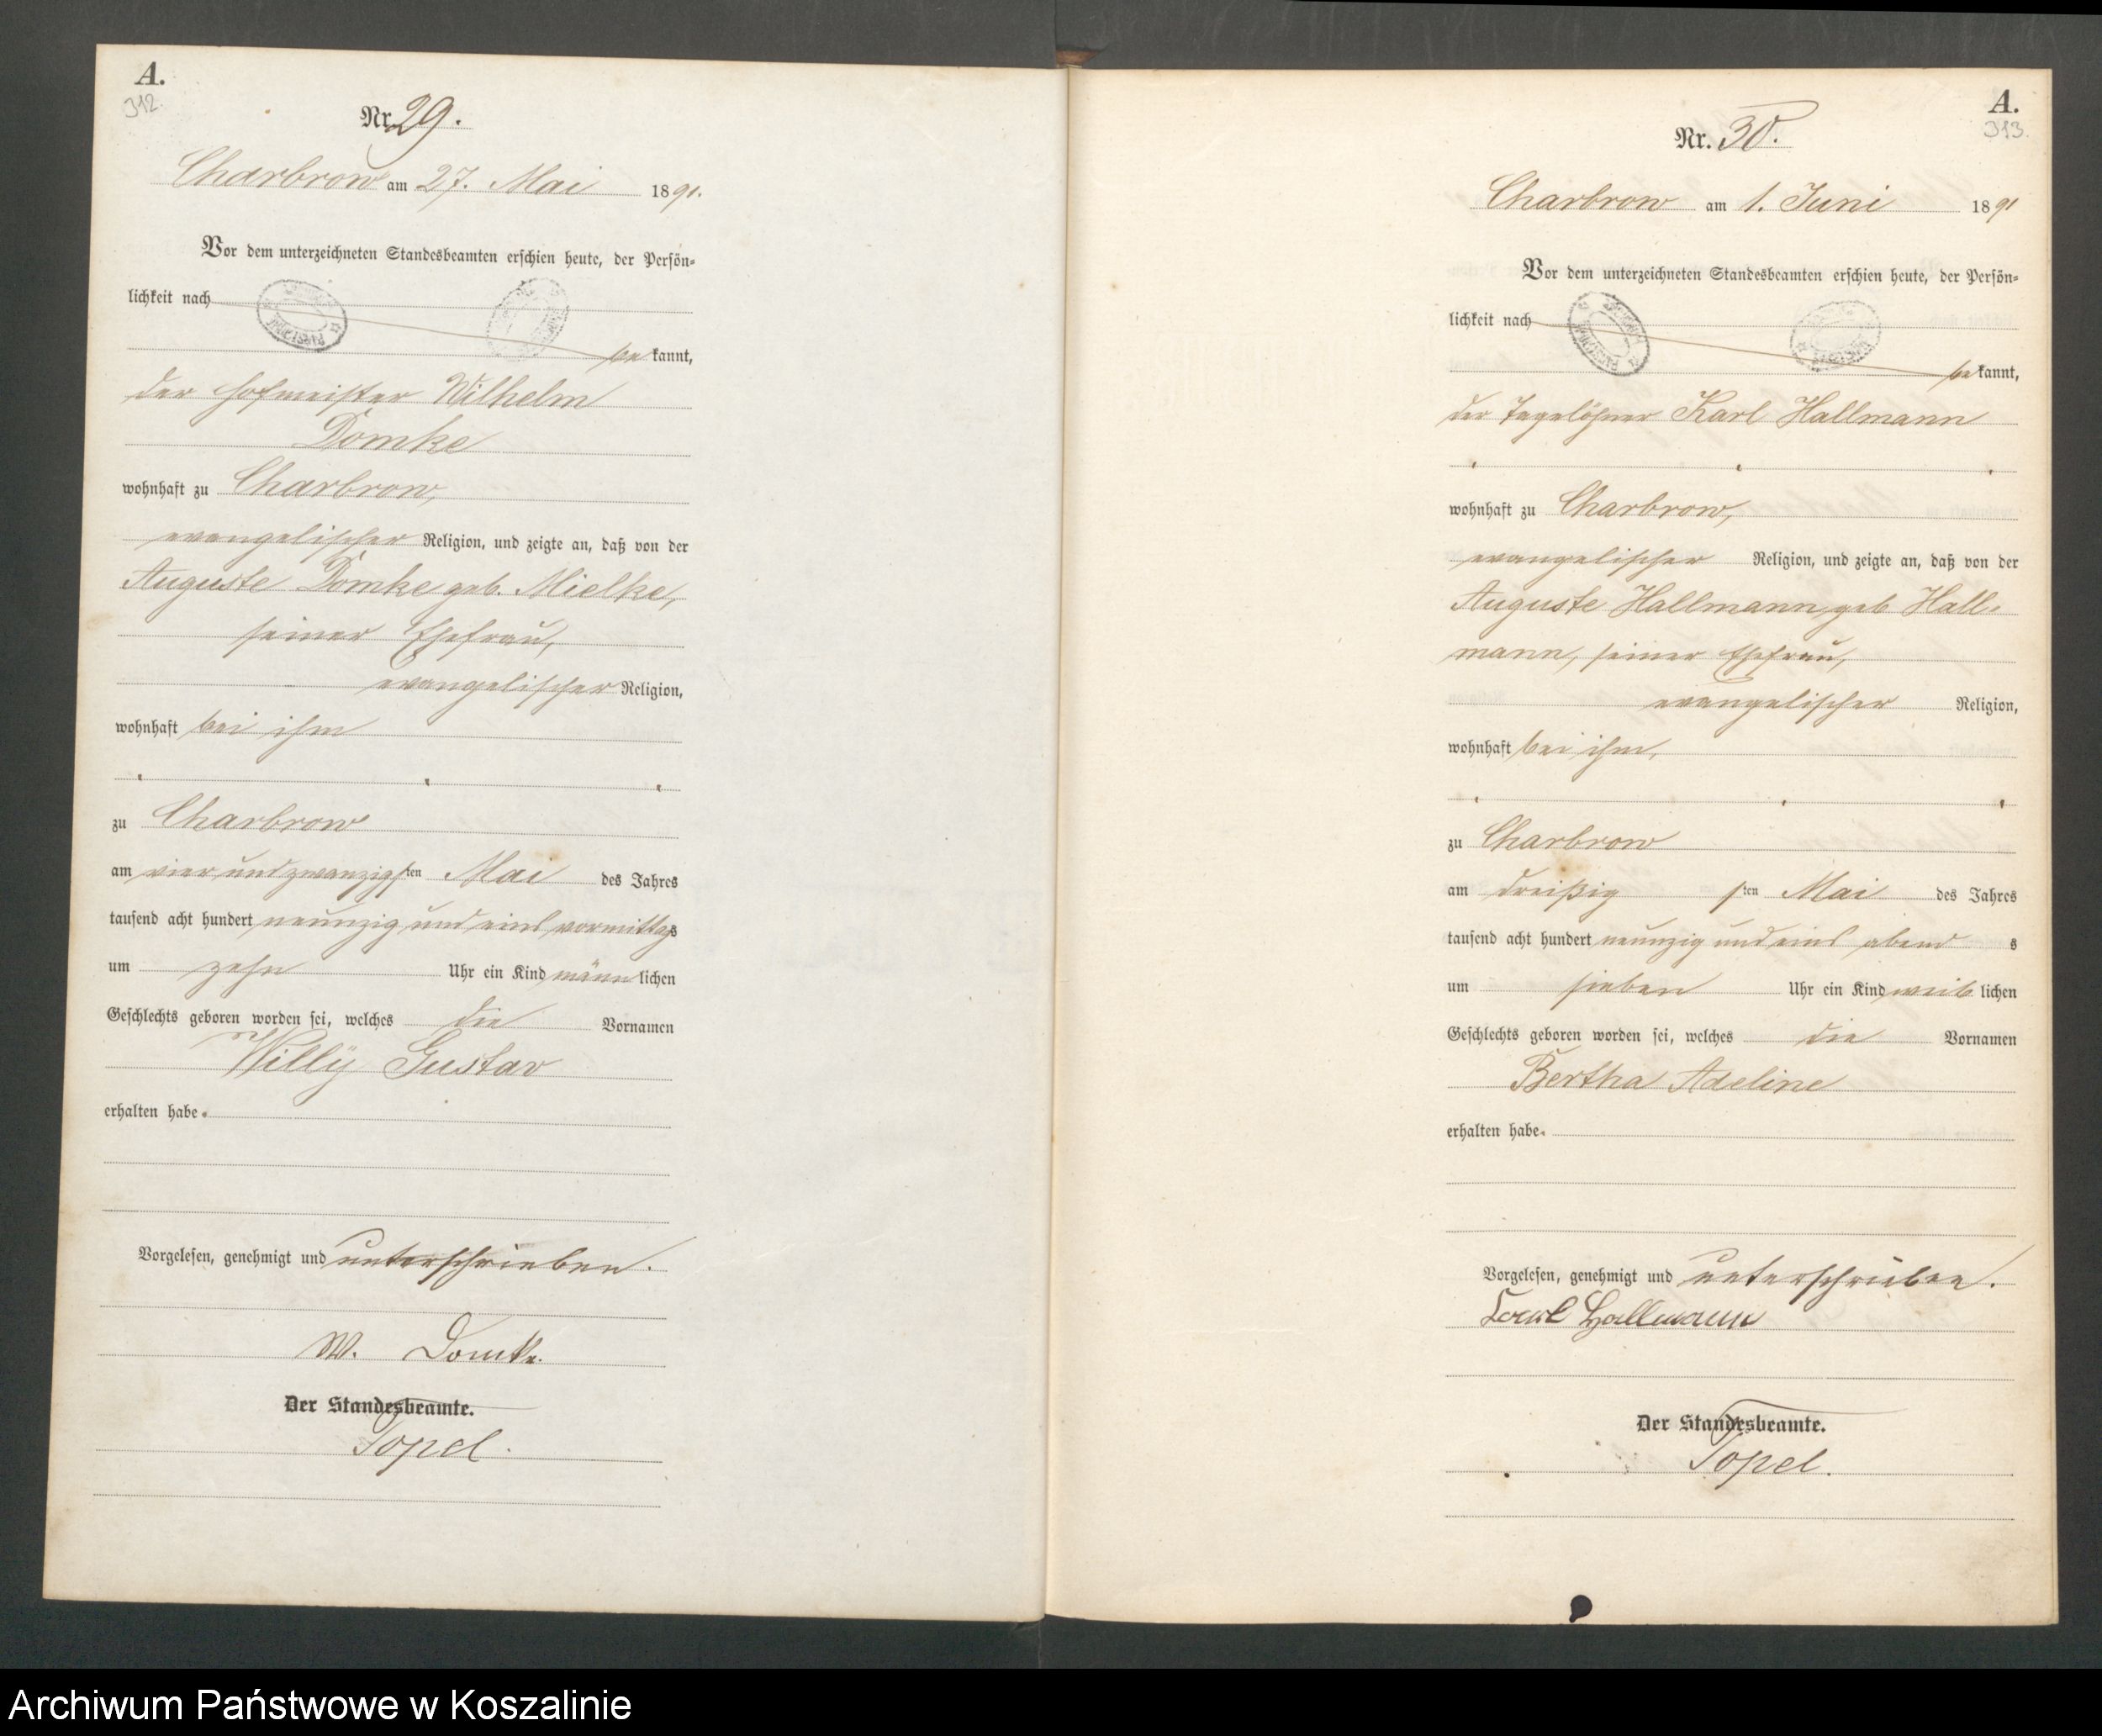 A.
312.
Nr. 29.
Charbrow am 27. Mai 1891.
Vor dem unterzeichneten Standesbeamten erschien heute, der Persön-
lichkeit nach
be kannt,
der Hofmeister Wilhelm
Domke
wohnhaft zu Charbrow,
evangelischer Religion, und zeigte an, daß von der
Auguste Domke geb. Mielke,
seiner Ehefrau,
evangelischer Religion,
wohnhaft bei ihm
zu Charbrow
am vier und zwanzigsten Mai des Jahres
tausend acht hundert neunzig und eins vormittags
um zehn Uhr ein Kind männlichen
Geschlechts geboren worden sei, welches die Vornamen
Willÿ Gustav
erhalten habe.
Vorgelesen, genehmigt und unterschrieben.
W. Domke.
Der Standesbeamte.
Topel.
A.
313.
Nr. 30.
Charbrow am 1. Juni 1891
Vor dem unterzeichneten Standesbeamten erschien heute, der Persön-
lichkeit nach
be kannt,
der Tagelöhner Karl Hallmann
wohnhaft zu Charbrow,
evangelischer Religion, und zeigte an, daß von der
Auguste Hallmann, geb Hall-
mann, seiner Ehefrau,
evangelischer Religion,
wohnhaft bei ihm,
zu Charbrow
am dreißig sten Mai des Jahres
tausend acht hundert neunzig und eins abend s
um sieben Uhr ein Kind weib lichen
Geschlechts geboren worden sei, welches die Vornamen
Bertha Adeline
erhalten habe.
Vorgelesen, genehmigt und unterschrieben.
Karl Hallmann
Der Standesbeamte.
Topel.
Archiwum Państwowe w Koszalinie